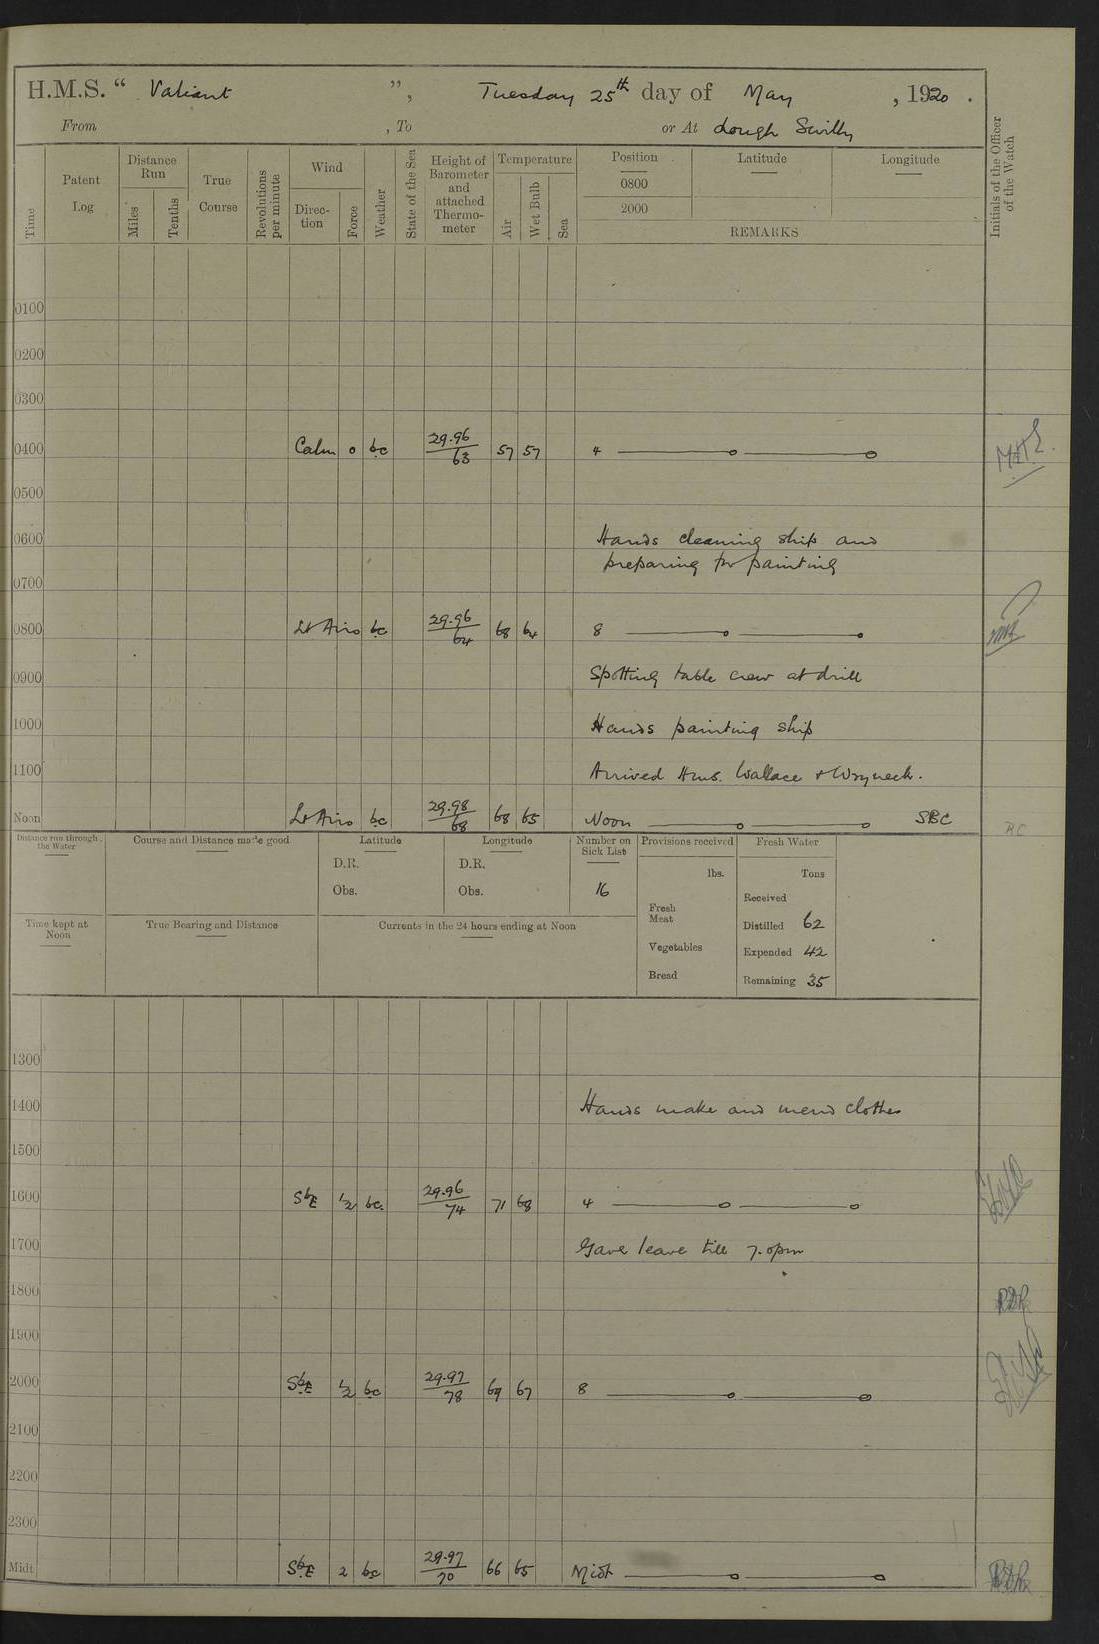 H.M.S. " Valiant ", Tuesday 25th day of May, 1920.
From , To or At Lough Swilly
Time
Patent Log
Distance Run
Miles
Tenths
True Course
Revolutions per minute
Wind
Direction
Force
Weather
State of the Sea
Height of Barometer and attached Thermometer
Temperature
Air
Wet Bulb
Sea
Position
Latitude
Longitude
0800
2000
REMARKS
Initials of the Officer of the Watch
0100
0200
0300
0400 Calm 0 bc 29.96/63 57 57 4
0500
0600 Hands cleaning ship and
preparing for painting
0700
0800 Lt Airs bc 29.96/64 68 64 8
0900 Spotting table crew at drill
1000 Hands painting ship
1100 Arrived H.M.S. Wallace & Wryneck.
Noon Lt Airs bc 29.98/68 68 65 Noon SBC
Distance run through the Water
Course and Distance made good
Latitude
D.R.
Obs.
Longitude
D.R.
Obs.
Number on Sick List
16
Provisions received
lbs.
Fresh Meat
Vegetables
Bread
Fresh Water
Tons
Received
Distilled 62
Expended 42
Remaining 35
Time kept at Noon
True Bearing and Distance
Currents in the 24 hours ending at Noon
1300
1400 Hands make and mend clothes
1500
1600 SbE ½ bc 29.96/74 71 68 4
1700 Gave leave till 7.0pm
1800
1900
2000 SbE ½ bc 29.97/78 69 67 8
2100
2200
2300
Midt SbE 2 bc 29.97/70 66 65 Midt